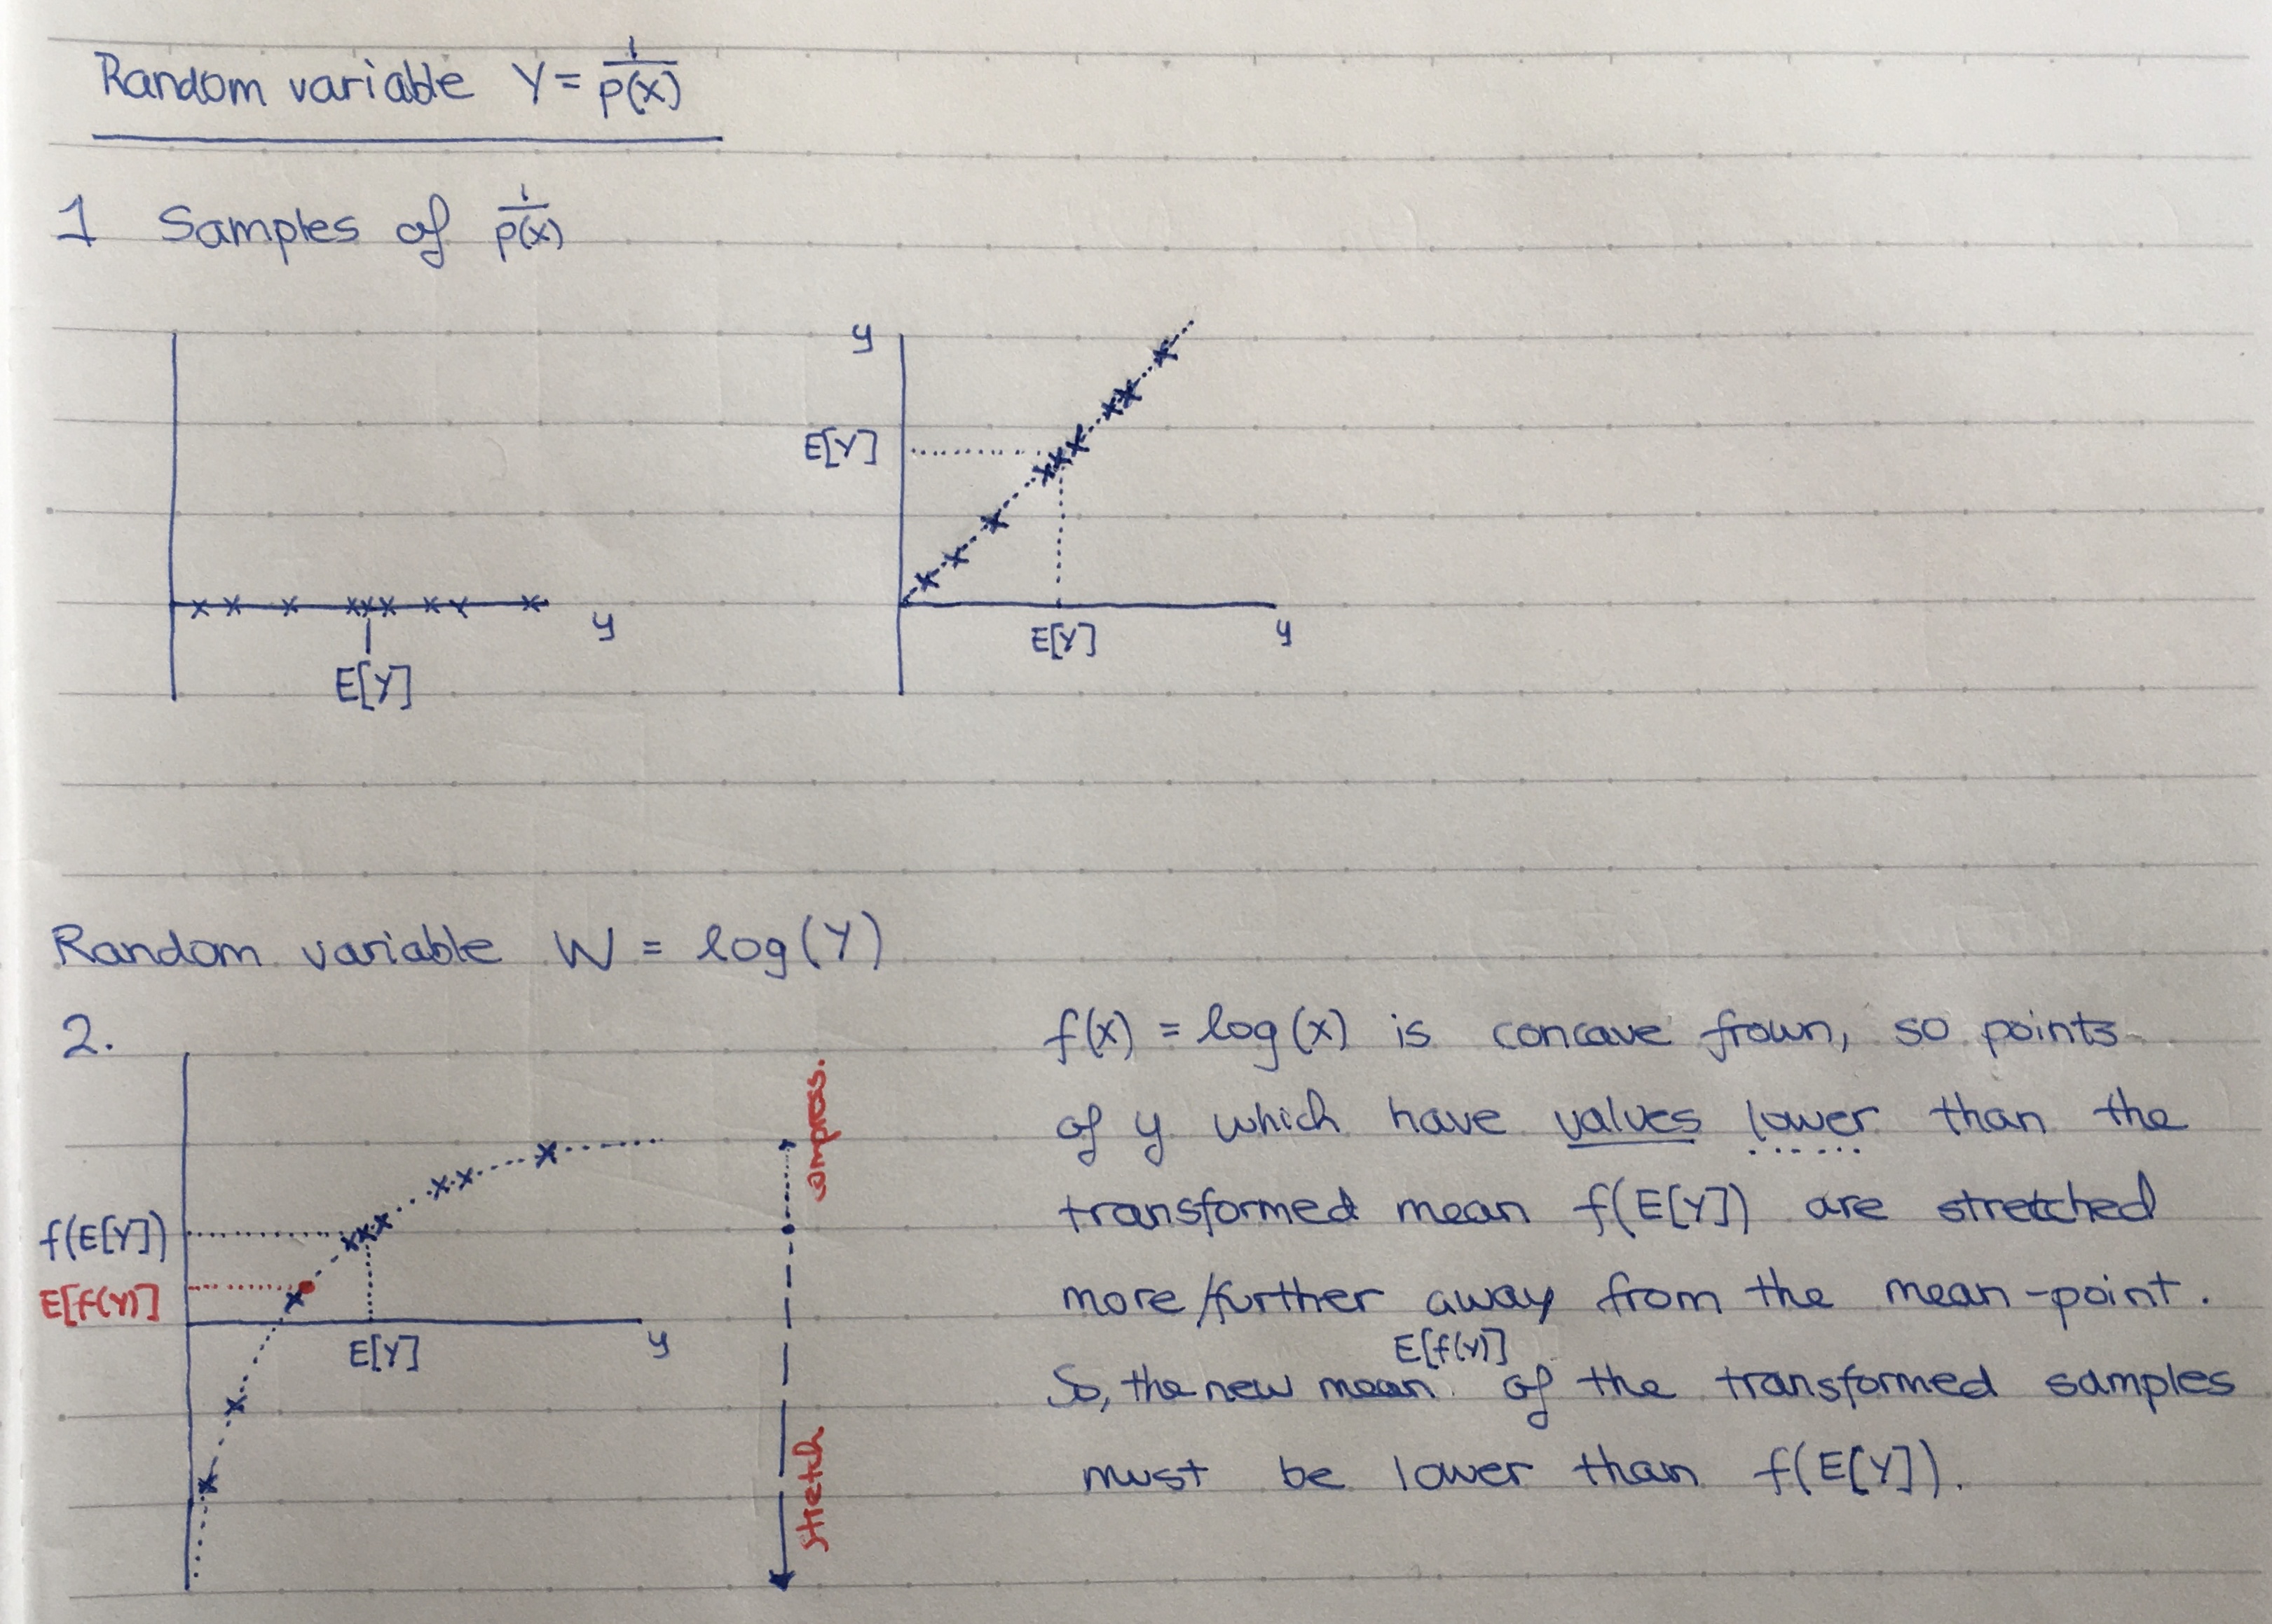 Random variable Y = 1/p(X)
1 Samples of 1/p(x)
y
E[Y]
y
E[Y]
y
E[Y]
Random variable W = log(Y)
2.
f(E[Y])
E[f(Y)]
E[Y]
y
compress.
stretch
f(x) = log(x) is concave frown, so points
of y which have values lower than the
transformed mean f(E[Y]) are stretched
more/further away from the mean-point.
E[f(Y)]
So, the new mean of the transformed samples
must be lower than f(E[Y]).